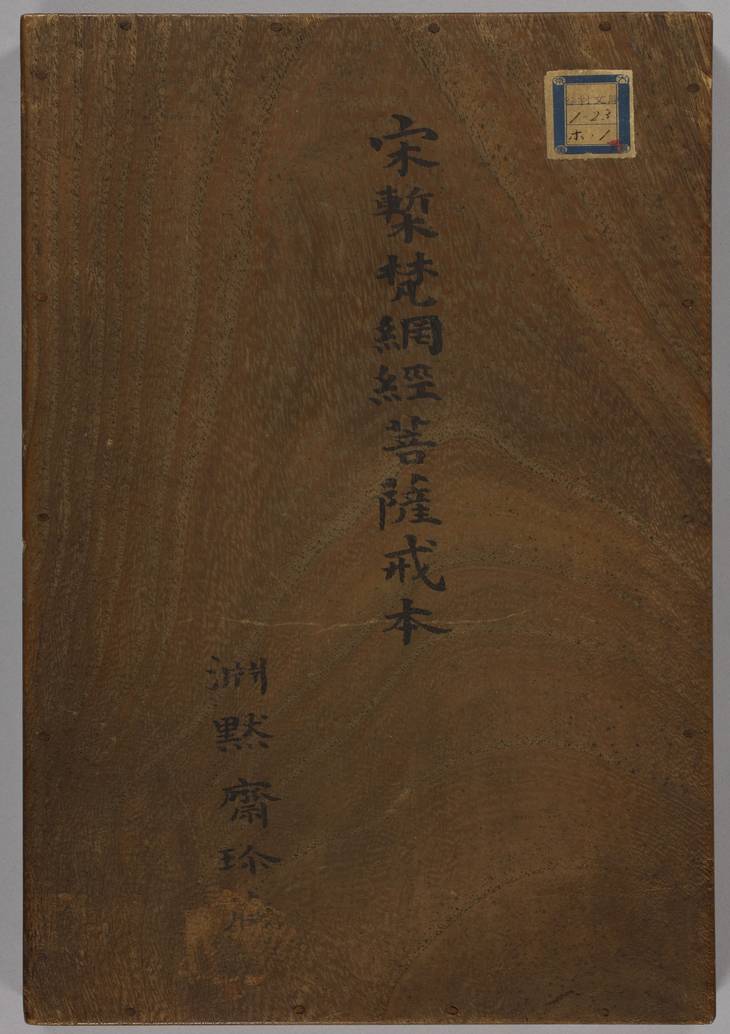 宋槧梵網經菩薩戒本
淵黙齋珍藏
1-23
ホ・1